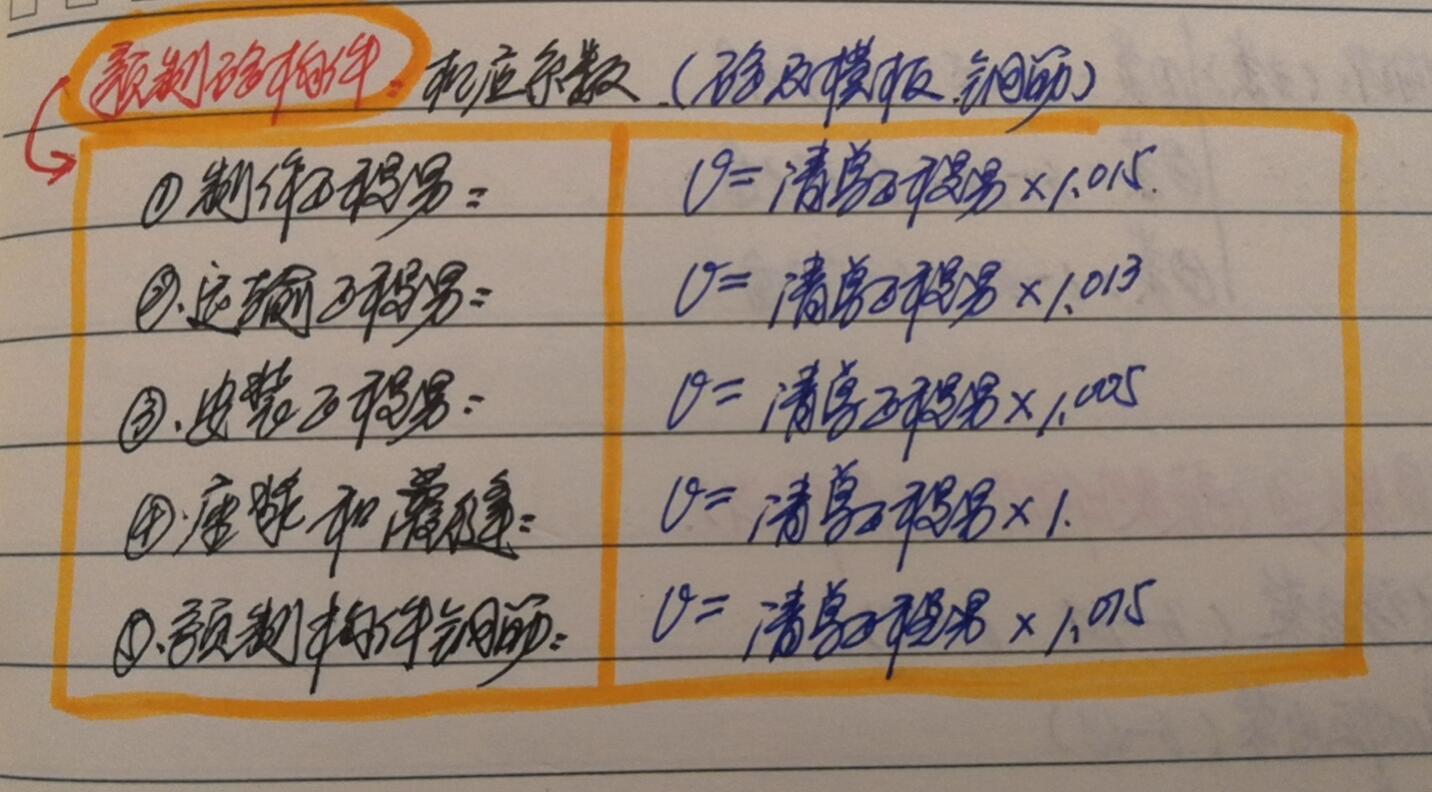 预制砼构件:相应系数(砼及模板.钢筋)
①制作工程量: V=清单工程量×1.015.
②.运输工程量: V=清单工程量×1.013
③.安装工程量: V=清单工程量×1.005
④.座浆和灌缝: V=清单工程量×1.
⑤.预制构件钢筋: V=清单工程量×1.015